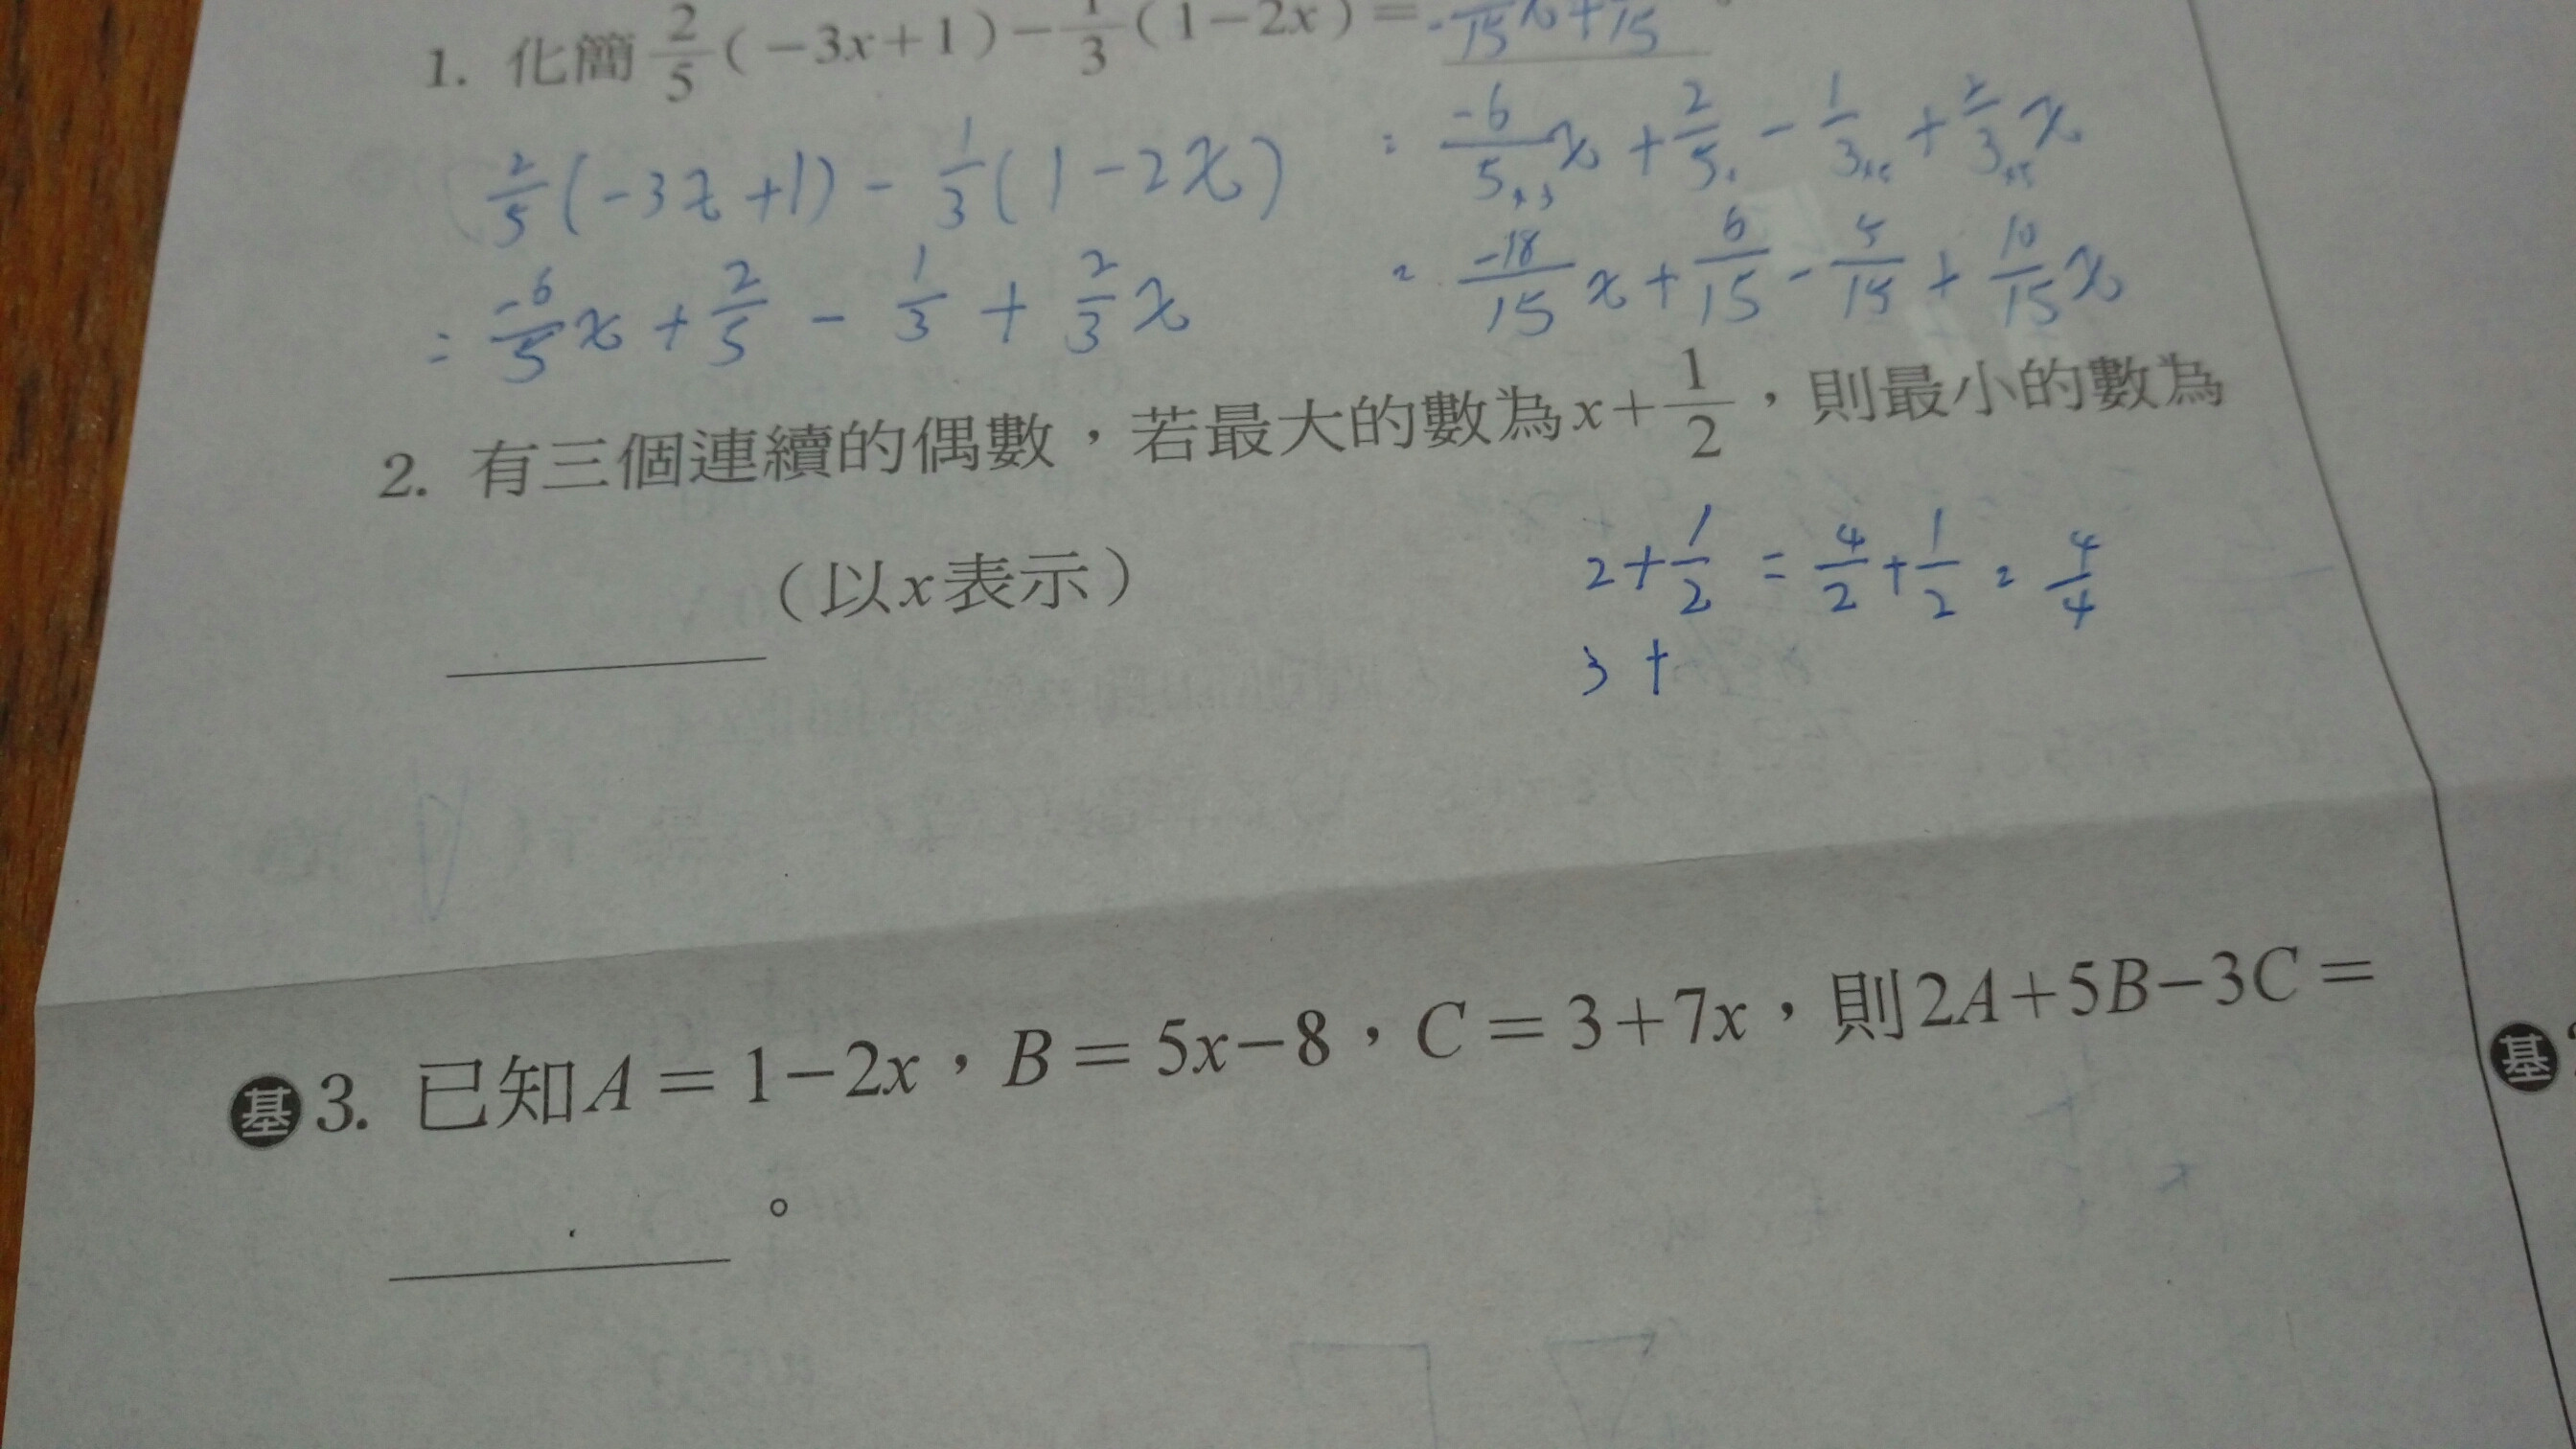 1. 化簡 2/5(-3x+1)-1/3(1-2x)= -/15x+/15
2/5(-3x+1)-1/3(1-2x)
= -6/5x+2/5-1/3+2/3x
= -6/5×3x+2/5-1/3×5+2/3×5x
= -18/15x+6/15-5/15+10/15x
2. 有三個連續的偶數，若最大的數為x+1/2，則最小的數為
（以x表示）
2+1/2=4/2+1/2=4/4
3+
基 3. 已知A=1-2x，B=5x-8，C=3+7x，則2A+5B-3C=
。
基